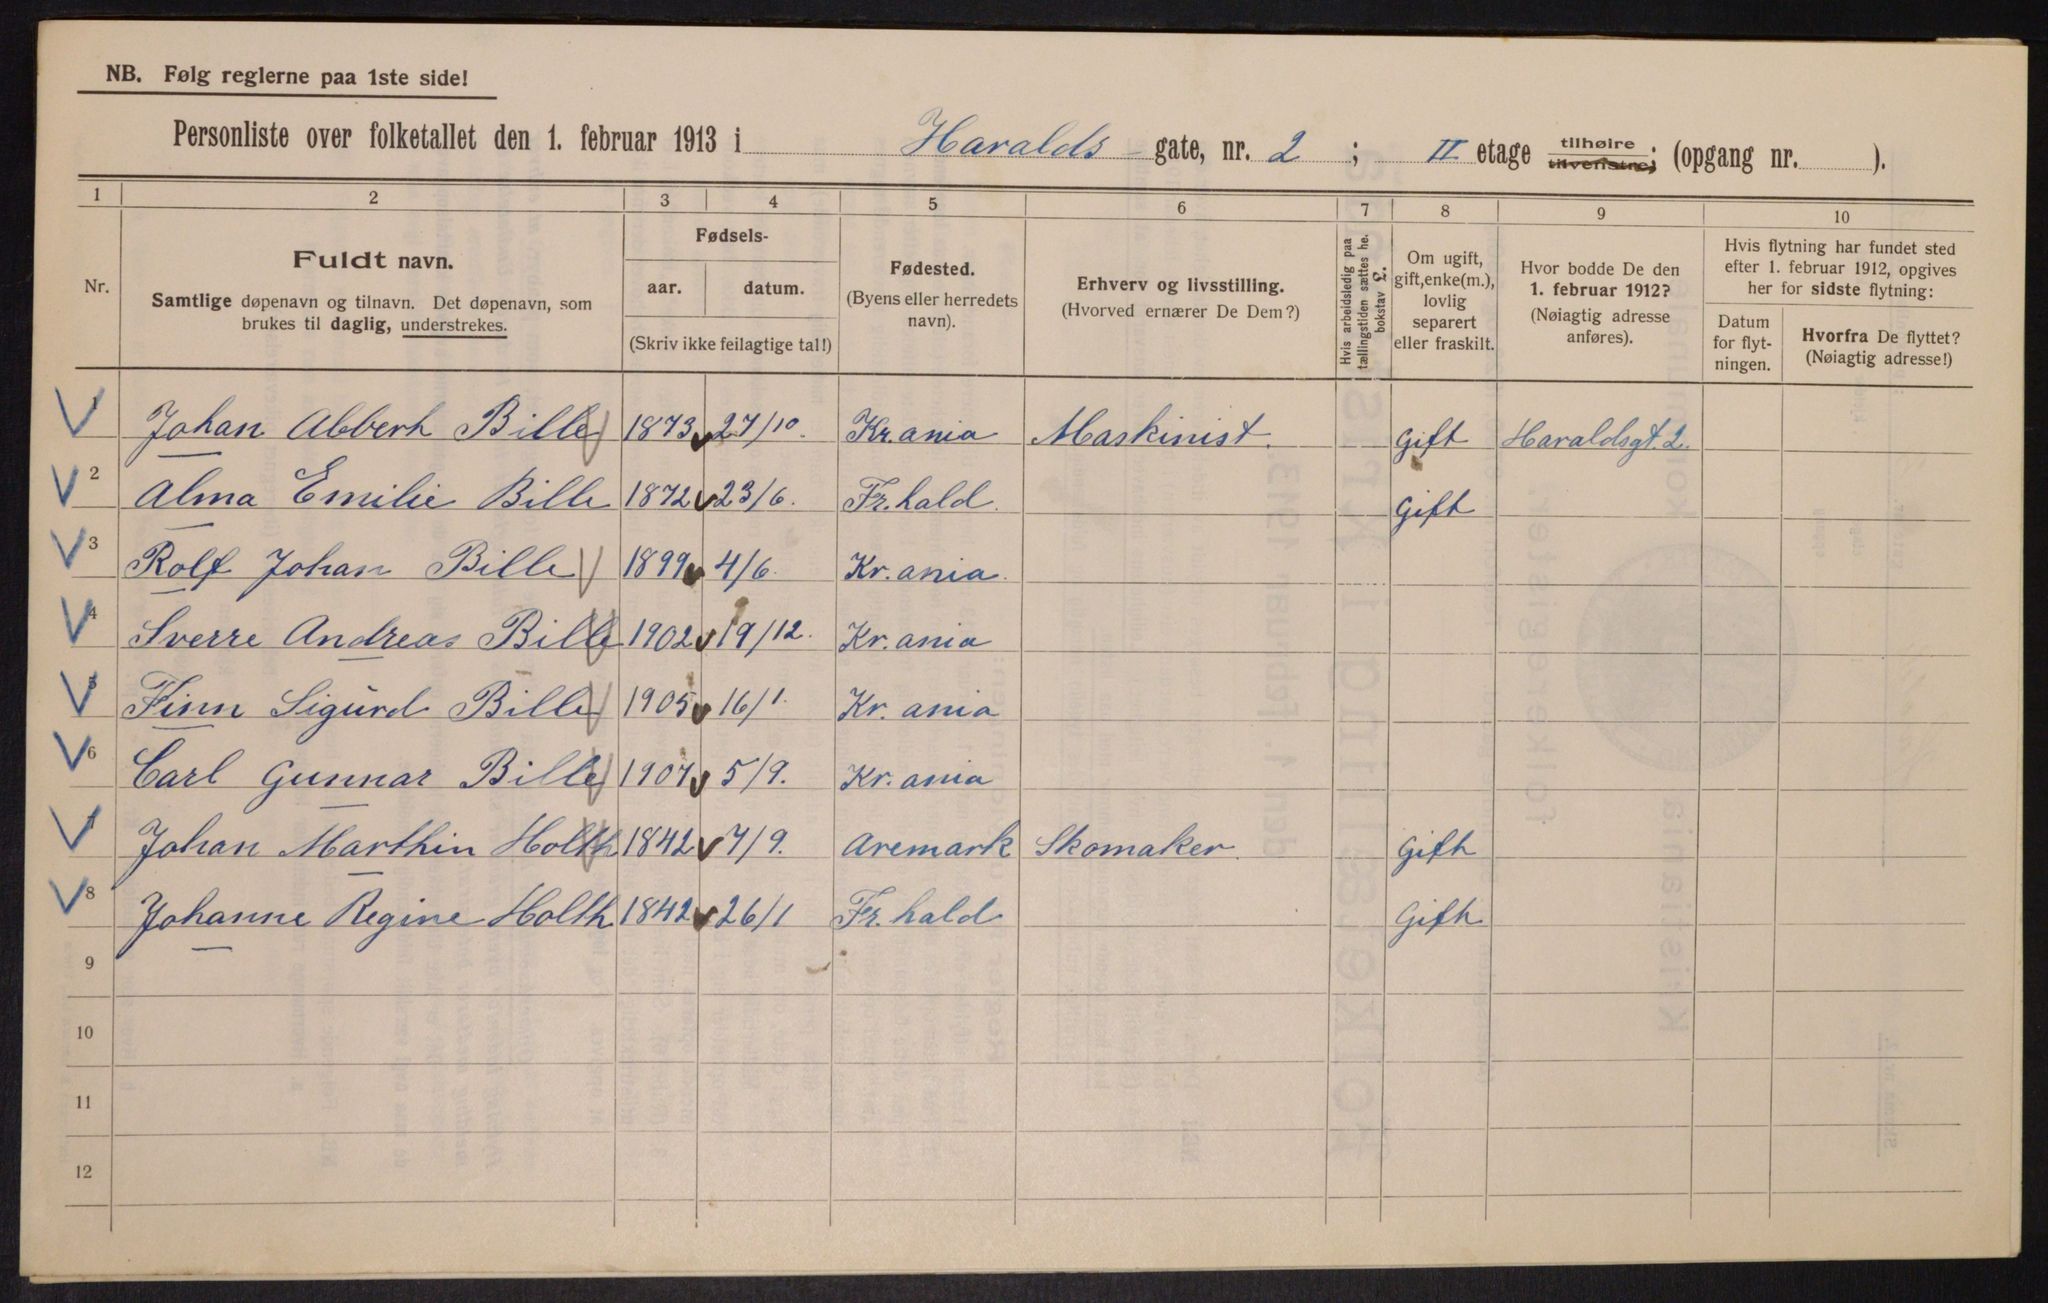 NB. Følg reglerne paa 1ste side!
Personliste over folketallet den 1. februar 1913 i Haralds gate, nr. 2 ; II etage tilhøire tilvenstre; (opgang nr. ).
1 2 3 4 5 6 7 8 9 10
Nr.
Fuldt navn.
Samtlige døpenavn og tilnavn. Det døpenavn, som
brukes til daglig, understrekes.
Fødsels-
aar. datum.
(Skriv ikke feilagtige tal!)
Fødested.
(Byens eller herredets
navn).
Erhverv og livsstilling.
(Hvorved ernærer De Dem?)
Hvis arbeidsledig paa
tællingstiden sættes he.
bokstav L.
Om ugift,
gift, enke(m.),
lovlig
separert
eller fraskilt.
Hvor bodde De den
1. februar 1912?
(Nøiagtig adresse
anføres).
Hvis flytning har fundet sted
efter 1. februar 1912, opgives
her for sidste flytning:
Datum
for flyt-
ningen.
Hvorfra De flyttet?
(Nøiagtig adresse!)
1 Johan Albbert Bille 1873 27/10. Kr.ania Maskinist. Gift Haraldsgt. 2.
2 Alma Emilie Bille 1872 23/6. Fr.hald. Gift
3 Rolf Johan Bille 1899 4/6. Kr.ania.
4 Sverre Andreas Bille 1902 19/12. Kr.ania
5 Finn Sigurd Bille 1905 16/1. Kr.ania
6 Carl Gunnar Bille 1907 5/9. Kr.ania
7 Johan Marthin Holth 1842 7/9. Aremark Skomaker. Gift
8 Johanne Regine Holth 1842 26/1 Fr.hald Gift
9
10
11
12